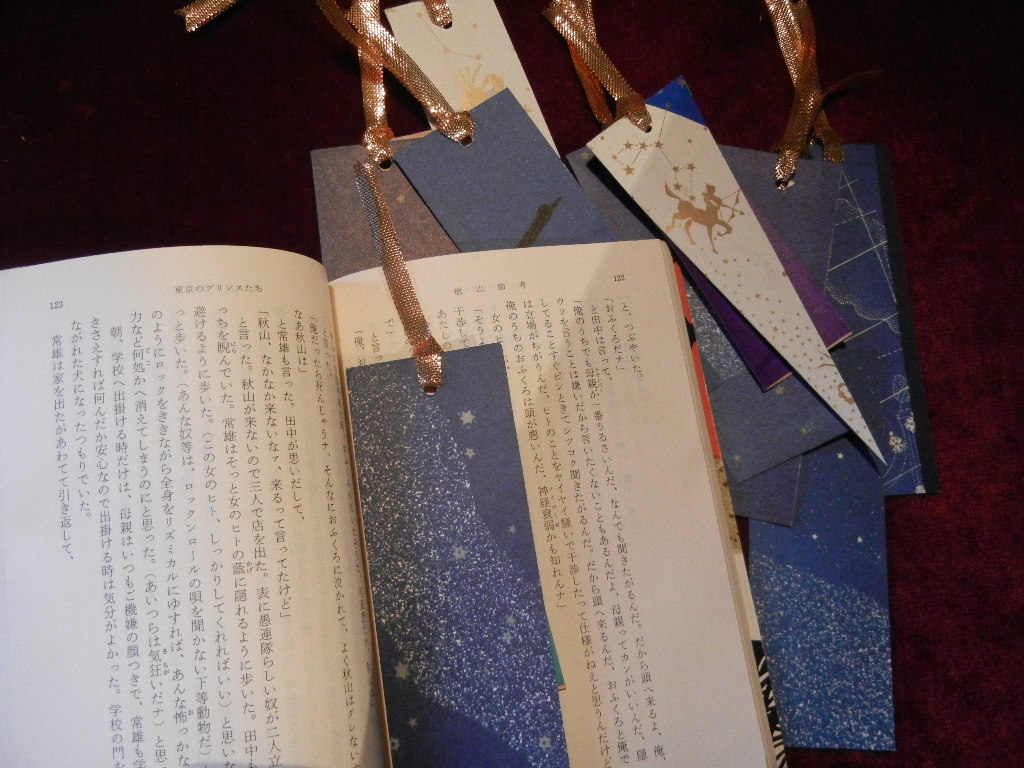 122
楢山節考
と、つぶやいた。
「おふくろだナ」
と田中は言って、
「俺のうちでも母親が一番うるさいんだ、なんでも聞きたがるんだ。だから頭へ来るよ、俺、
ウソを言うことは嫌いだから言いたくないこともあるんだよ、母親ってカンがいいんだ、隠
してることすぐピンときてシツコク聞きたがるんだ。だから頭へ来るんだ、おふくろと俺で
は立場がちがうんだ、ヒトのことをヤイヤイ騒いで干渉したって仕様がねえと思うんだけど
俺のうちのおふくろは頭が悪いんだ、神経衰弱かも知れんナ」
女のに
「そう
干渉して
あたし
で」
と言っ
「俺、お
と言った。
「俺だったら死んじゃうナ、そんなにおふくろに泣かれて、よく秋山はグレない
なあ秋山は」
と常雄も言った。田中が思いだして、
「秋山、なかなか来ないなァ、来るって言ってたけど」
と言った。秋山が来ないので三人で店を出た。表に愚連隊らしい奴が二人立
っちを睨んでいた。常雄はそっと女のヒトの蔭に隠れるように歩いた。田中も
避けるように歩いた。（この女のヒト、しっかりしてくれればいい）と思いな
っと歩いた。（あんな奴等は、ロックンロールの唄を聞かない下等動物だ）
のようにロックをききながら全身をリズミカルにゆすれば、あんな怖っかな
力など何処かへ消えてしまうのにと思った。（あいつらは気狂いだナ）と思
朝、学校へ出掛ける時だけは、母親はいつもご機嫌の顔つきで、常雄も学
きさえすれば何んだか安心なので出掛ける時は気分がよかった。学校の門を
ながれた犬になったつもりでいた。
常雄は家を出たがあわてて引き返して、
東京のプリンスたち
123